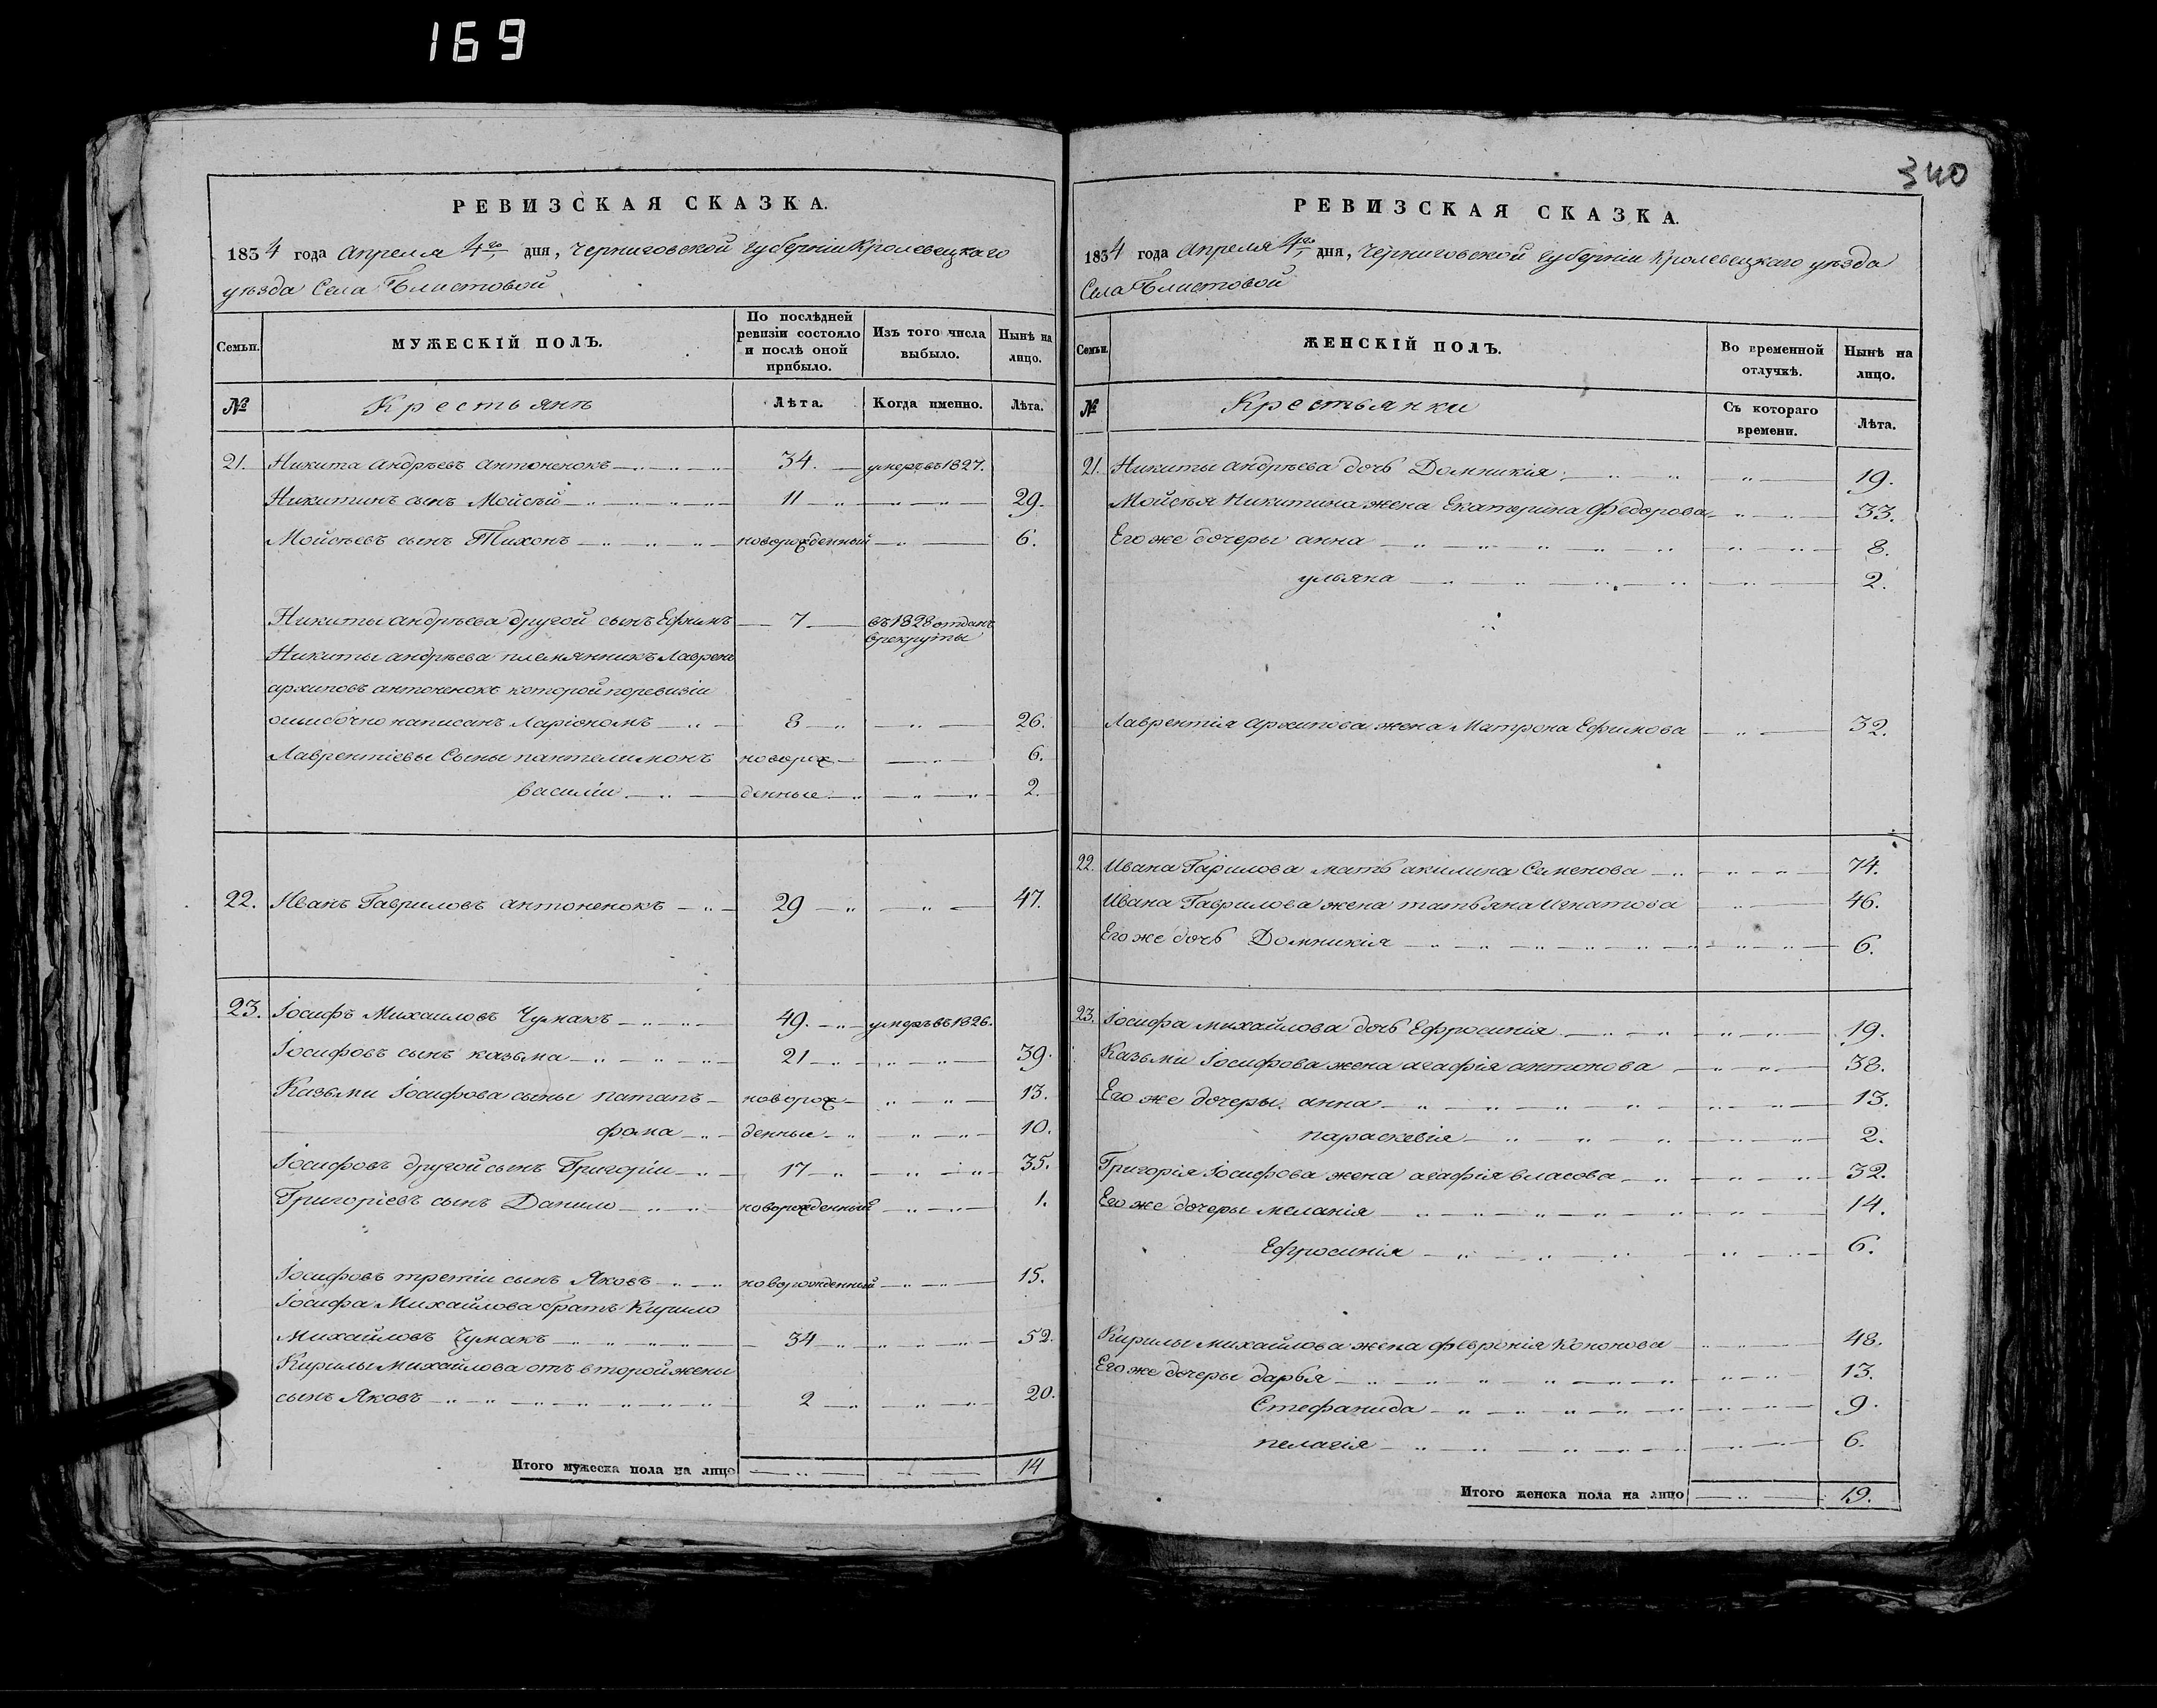 169
340
РЕВИЗСКАЯ СКАЗКА.
1834 года Апреля 4го дня, Черниговской губерніи Кролевецкаго
уѣзда Села Блистовой
Семьи.
МУЖЕСКІЙ ПОЛЪ.
По послѣдней ревизіи состояло и послѣ оной прибыло.
Изъ того числа выбыло.
Нынѣ на лицо.
№ Крестьянъ Лѣта. Когда именно. Лѣта.
21. Никита Андрѣевъ Антоненокъ 34. умеръ въ 1827.
Никитинъ сынъ Мойсѣй 11 29.
Мойсѣевъ сынъ Тихонъ новорожденный 6.
Никиты Андрѣева другой сынъ Ефимъ 7 въ 1828 отданъ
врекруты
Никиты андрѣева племянникъ Лаврен
архиповъ антоненокъ которой поревизіи
ошибочно написанъ Ларіономъ 8 26.
Лаврентіевы Сыны пантелимонъ новорож 6.
василіи денные 2.
22. Иванъ Гавриловъ антоненокъ 29 47.
23. Іосифъ Михаиловъ Чумакъ 49. умеръ въ 1826.
Іосифовъ сынъ казьма 21 39.
Казьми Іосифова сыны патапъ новорож 13.
фома денные 10.
Іосифовъ другой сынъ Григоріи 17 35.
Григоріевъ сынъ Данило новорожденный 1.
Іосифовъ третіи сынъ Яковъ новорожденный 15.
Іосифа Михайлова братъ Кирило
Михайловъ Чумакъ 34 52.
Кирилы михайлова отъ второй жены
сынъ Яковъ 2 20.
Итого мужеска пола на лицо 14
РЕВИЗСКАЯ СКАЗКА.
1834 года Апреля 4го дня, Черниговской губерніи Кролевецкаго уѣзда
Села Блистовой
Семьи.
ЖЕНСКІЙ ПОЛЪ.
Во временной отлучкѣ.
Нынѣ на лицо.
№ Крестьянки Съ котораго времени. Лѣта.
21. Никиты андрѣева дочь Домникія 19.
Мойсѣя Никитина жена Екатерина Федорова 33.
Его же дочеры анна 8.
ульяна 2.
Лаврентія архипова жена Матрона Ефимова 32.
22. Ивана Гарилова мать акилина Семенова 74.
Ивана Гаврилова жена татьяна Игнатова 46.
Его же дочь Домникія 6.
23. Іосифа михайлова дочь Ефросинія 19.
Казьми Іосифова жена агафія антонова 38.
Его же дочеры анна 13.
параскевія 2.
Григорія Іосифова жена агафія власова 32.
Его же дочеры меланія 14.
Ефросинія 6.
Кирилы михайлова жена февронія Кононова 48.
Его же дочеры дарья 13.
Стефанида 9.
пелагія 6.
Итого женска пола на лицо 19.